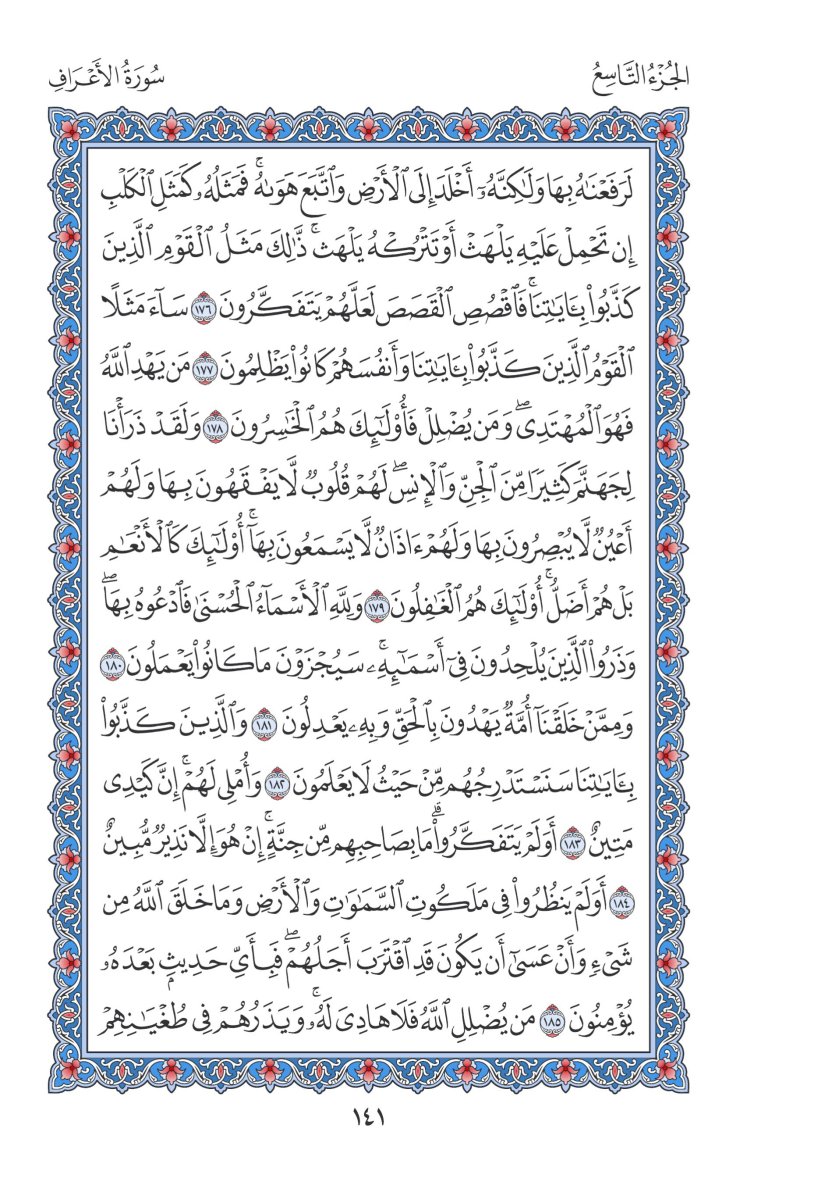 الجُزْءُ التَّاسِعُ
سُورَةُ الأَعْرَافِ
لَرَفَعْنَٰهُ بِهَا وَلَٰكِنَّهُۥٓ أَخْلَدَ إِلَى ٱلْأَرْضِ وَٱتَّبَعَ هَوَىٰهُۚ فَمَثَلُهُۥ كَمَثَلِ ٱلْكَلْبِ
إِن تَحْمِلْ عَلَيْهِ يَلْهَثْ أَوْ تَتْرُكْهُ يَلْهَثۚ ذَّٰلِكَ مَثَلُ ٱلْقَوْمِ ٱلَّذِينَ
كَذَّبُوا۟ بِـَٔايَٰتِنَاۚ فَٱقْصُصِ ٱلْقَصَصَ لَعَلَّهُمْ يَتَفَكَّرُونَ ١٧٦ سَآءَ مَثَلًا
ٱلْقَوْمُ ٱلَّذِينَ كَذَّبُوا۟ بِـَٔايَٰتِنَا وَأَنفُسَهُمْ كَانُوا۟ يَظْلِمُونَ ١٧٧ مَن يَهْدِ ٱللَّهُ
فَهُوَ ٱلْمُهْتَدِىۖ وَمَن يُضْلِلْ فَأُو۟لَٰٓئِكَ هُمُ ٱلْخَٰسِرُونَ ١٧٨ وَلَقَدْ ذَرَأْنَا
لِجَهَنَّمَ كَثِيرًا مِّنَ ٱلْجِنِّ وَٱلْإِنسِۖ لَهُمْ قُلُوبٌ لَّا يَفْقَهُونَ بِهَا وَلَهُمْ
أَعْيُنٌ لَّا يُبْصِرُونَ بِهَا وَلَهُمْ ءَاذَانٌ لَّا يَسْمَعُونَ بِهَآۚ أُو۟لَٰٓئِكَ كَٱلْأَنْعَٰمِ
بَلْ هُمْ أَضَلُّۚ أُو۟لَٰٓئِكَ هُمُ ٱلْغَٰفِلُونَ ١٧٩ وَلِلَّهِ ٱلْأَسْمَآءُ ٱلْحُسْنَىٰ فَٱدْعُوهُ بِهَاۖ
وَذَرُوا۟ ٱلَّذِينَ يُلْحِدُونَ فِىٓ أَسْمَٰٓئِهِۦۚ سَيُجْزَوْنَ مَا كَانُوا۟ يَعْمَلُونَ ١٨٠
وَمِمَّنْ خَلَقْنَآ أُمَّةٌ يَهْدُونَ بِٱلْحَقِّ وَبِهِۦ يَعْدِلُونَ ١٨١ وَٱلَّذِينَ كَذَّبُوا۟
بِـَٔايَٰتِنَا سَنَسْتَدْرِجُهُم مِّنْ حَيْثُ لَا يَعْلَمُونَ ١٨٢ وَأُمْلِى لَهُمْۚ إِنَّ كَيْدِى
مَتِينٌ ١٨٣ أَوَلَمْ يَتَفَكَّرُوا۟ۗ مَا بِصَاحِبِهِم مِّن جِنَّةٍۚ إِنْ هُوَ إِلَّا نَذِيرٌ مُّبِينٌ
١٨٤ أَوَلَمْ يَنظُرُوا۟ فِى مَلَكُوتِ ٱلسَّمَٰوَٰتِ وَٱلْأَرْضِ وَمَا خَلَقَ ٱللَّهُ مِن
شَىْءٍ وَأَنْ عَسَىٰٓ أَن يَكُونَ قَدِ ٱقْتَرَبَ أَجَلُهُمْۖ فَبِأَىِّ حَدِيثٍۭ بَعْدَهُۥ
يُؤْمِنُونَ ١٨٥ مَن يُضْلِلِ ٱللَّهُ فَلَا هَادِىَ لَهُۥۚ وَيَذَرُهُمْ فِى طُغْيَٰنِهِمْ
١٤١